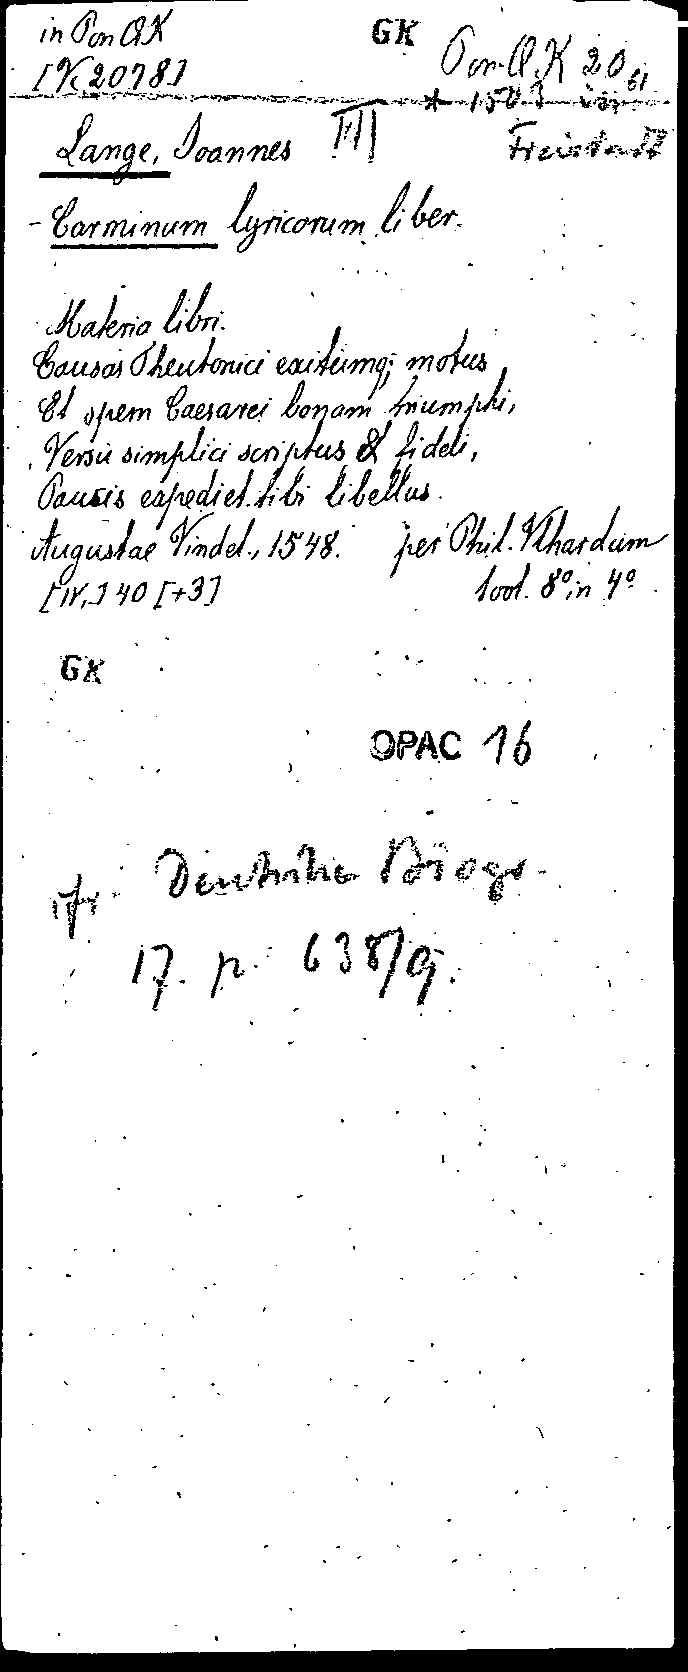 in Pon QK
GK
Pon. Q. K 20, 61
[K, 2078]
* 1503 in
Lange, Joannes
III
Freistadt
- Carminum lyricorum liber.
Materia libri.
Causas Theutonici exitumq; motus
Et spem Caesarei bonam triumphi,
Versu simplici scriptus & fideli,
Paucis expediet tibi libellus.
Augustae Vindel., 1548. per Phil. Vlhardum
[IV,] 40 [+3] fol. 8° in 4°
GK
OPAC 16
cfr. Deutsche Biogr.
17. p. 638/9.